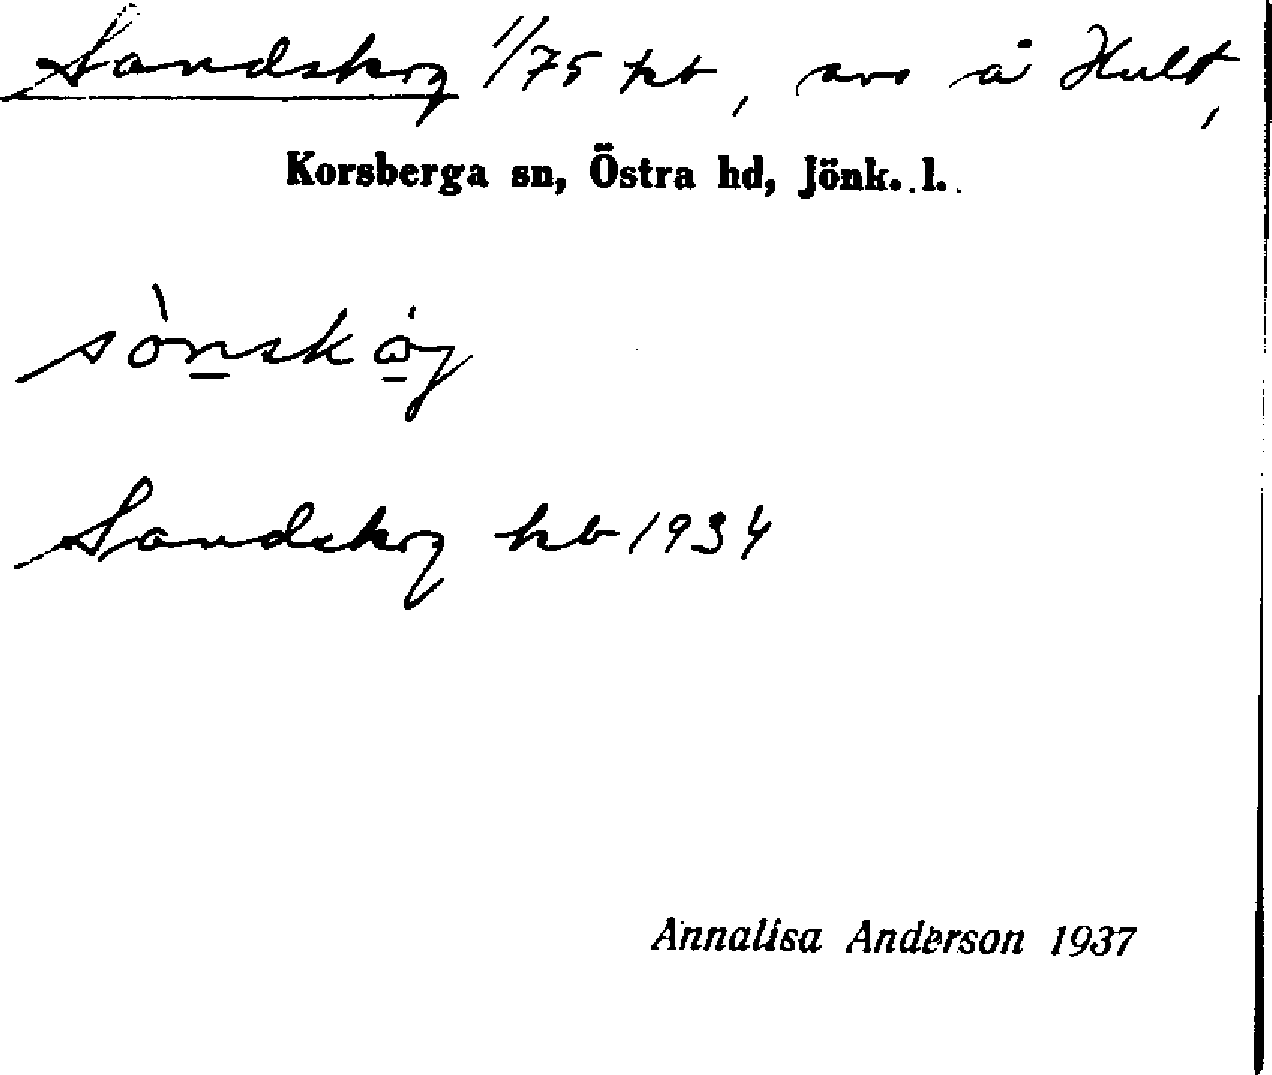 Sandskog 1/75 hb, avs å Hult,
Korsberga sn, Östra hd, Jönk. l.
Sandskog hb 1934
Annalisa Anderson 1937